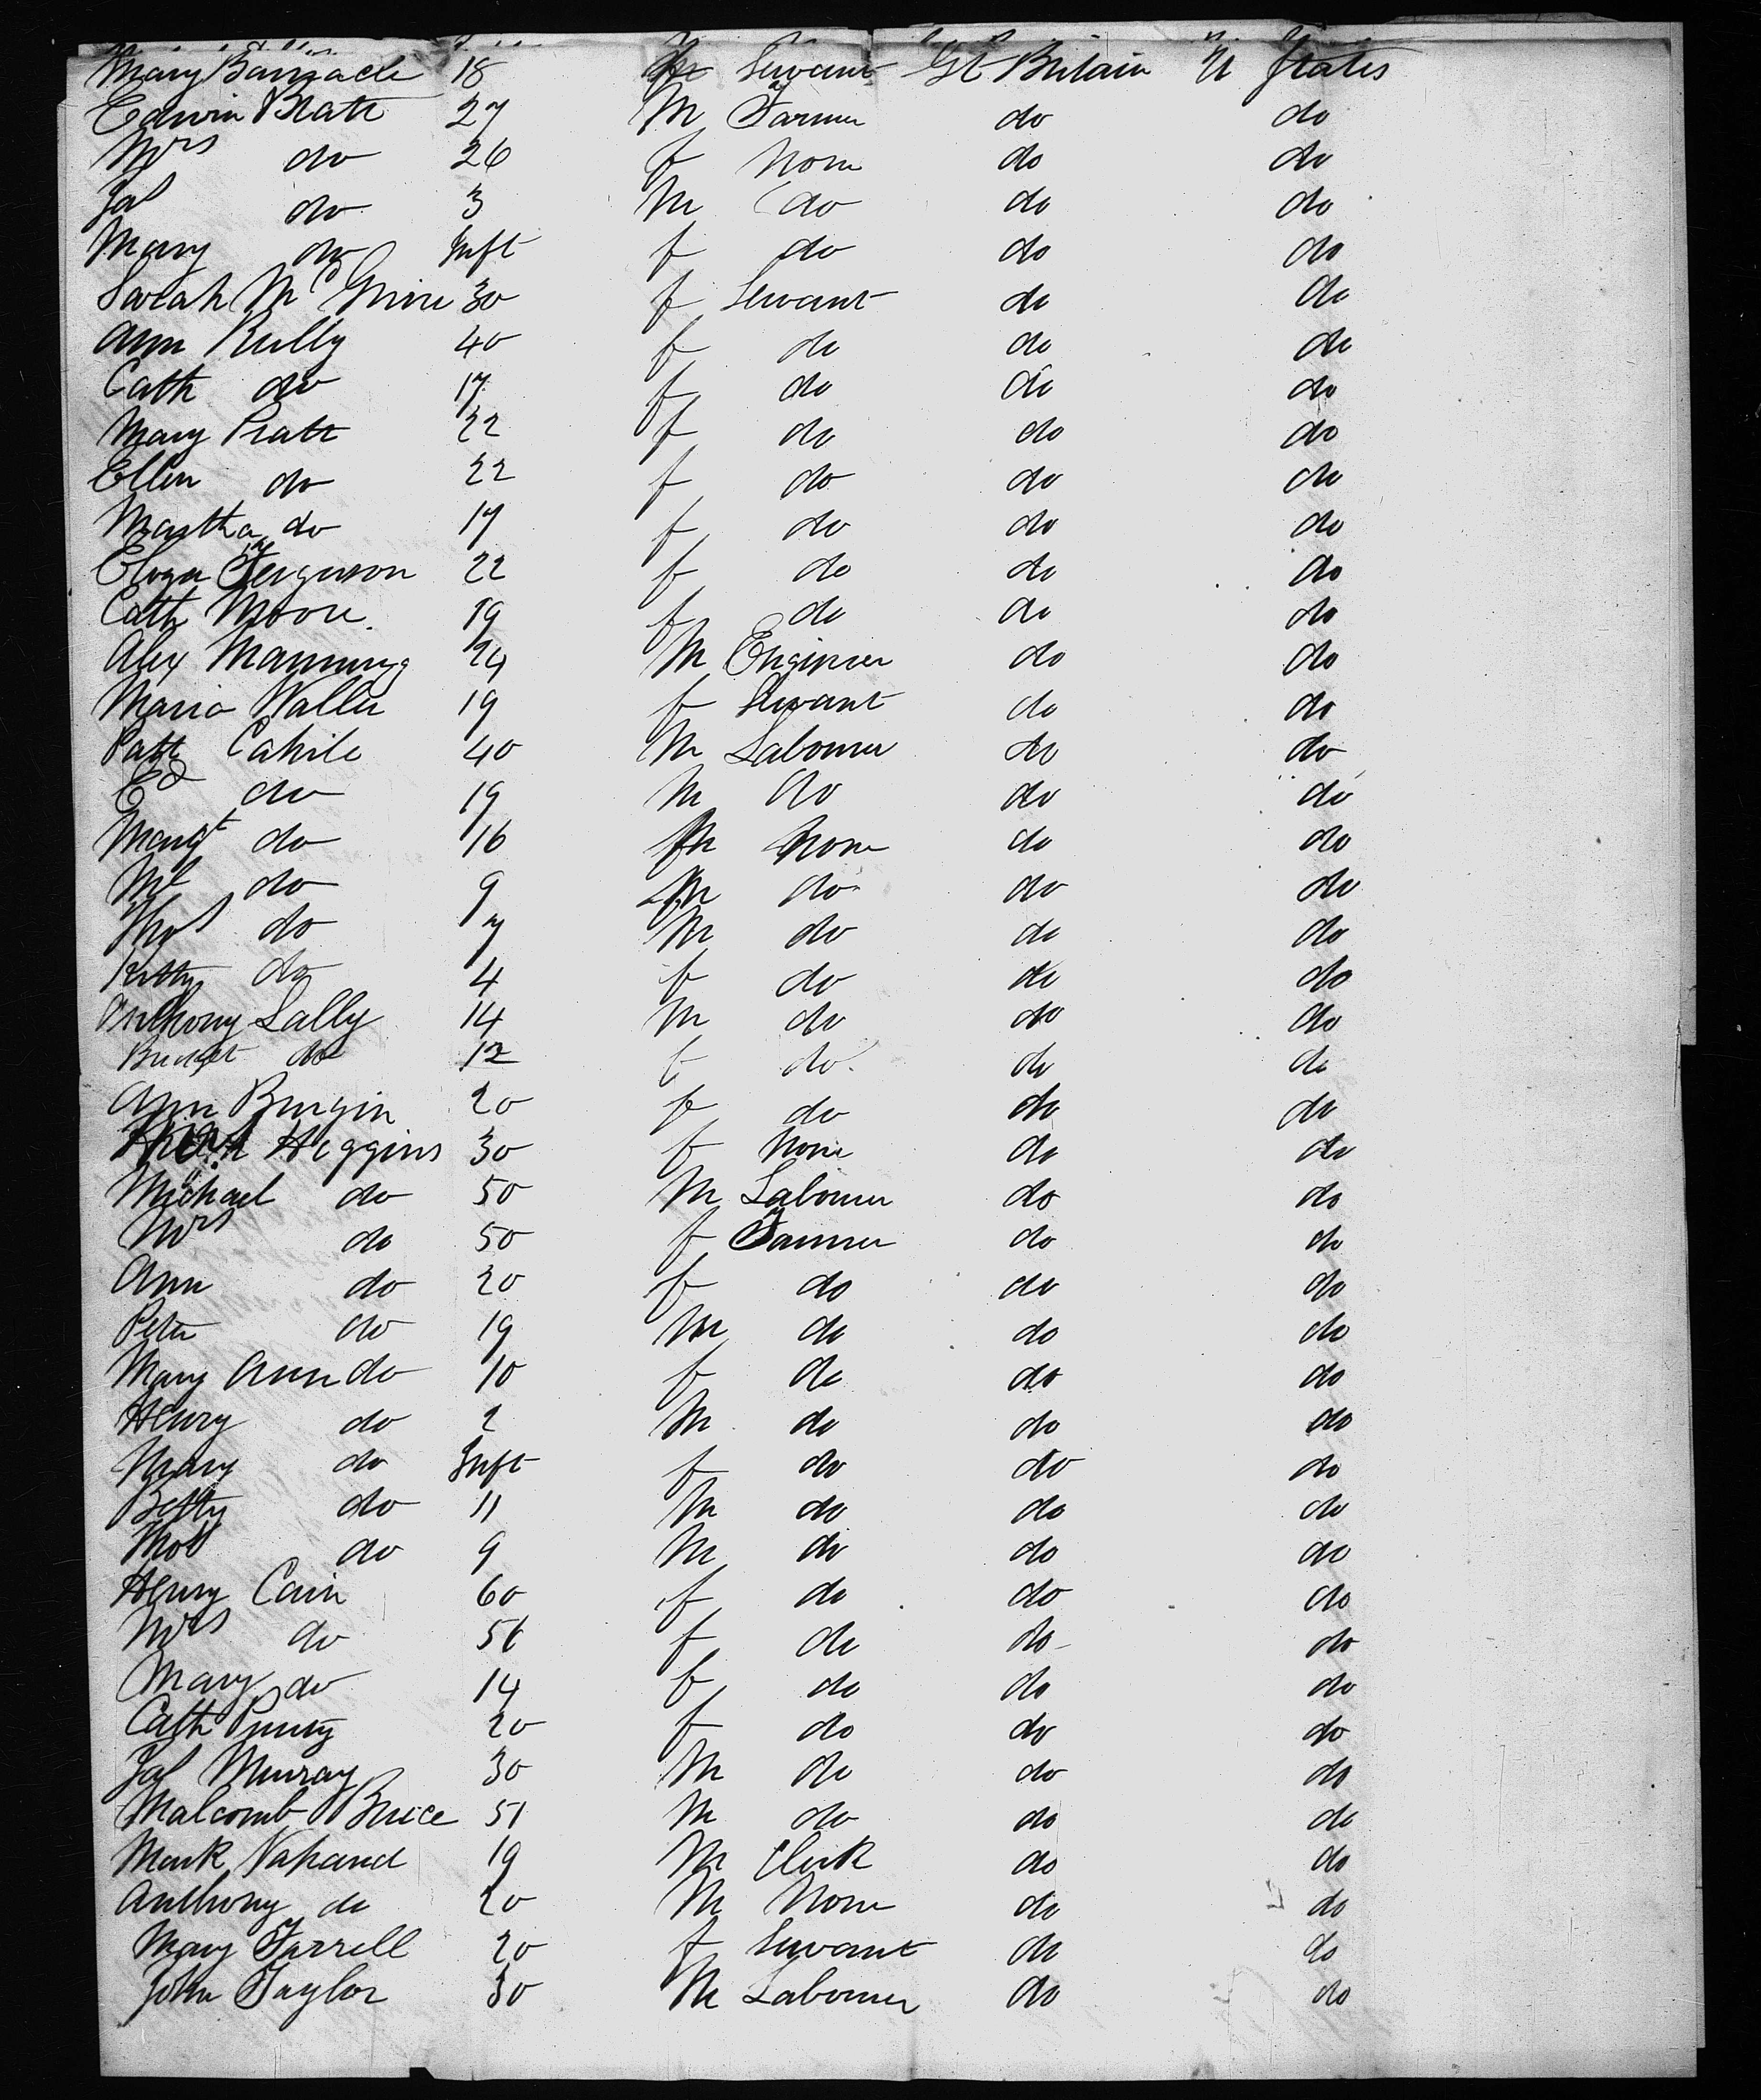 Mary Barnacle 18 f Servant Gt Britain U States
Edwin Blatt 27 M Farmer do do
Mrs do 26 f None do do
Jas do 3 M do do do
Mary do Inft f do do do
Sarah McGuire 30 f Servant do do
Ann Reilly 40 f do do do
Cath do 17 f do do do
Mary Pratt 22 f do do do
Ellen do 22 f do do do
Martha do 17 f do do do
Eliza Ferguson 22 f do do do
Cath Moore 19 f do do do
Alex Manning 24 M Engineer do do
Maria Waller 19 f Servant do do
Patt Cahill 40 M Labourer do do
Ed do 19 M do do do
Margt do 16 None do do
Ml do 9 M do do do
Thos do 7 M do do do
Kitty do 4 f do do do
Anthony Lally 14 M do do do
Bridget do 12 f do do do
Ann Burgin 20 f do do do
Higgins 30 f None do do
Michael do 50 M Labourer do do
Mrs do 50 f Farmer do do
Ann do 20 f do do do
Peter do 19 M do do do
Mary Ann do 10 f do do do
Henry do 2 M do do do
Mary do Inft f do do do
Betty do 11 M do do do
Thos do 9 M do do do
Henry Cain 60 f do do do
Mrs do 56 f do do do
Mary do 14 f do do do
Cath 20 f do do do
Jas Murray 30 M do do do
Malcomb Bruce 51 M do do do
Mark 19 M Clerk do do
Anthony do 20 M None do do
Mary Farrell 20 f Servant do do
John Taylor 30 M Labourer do do